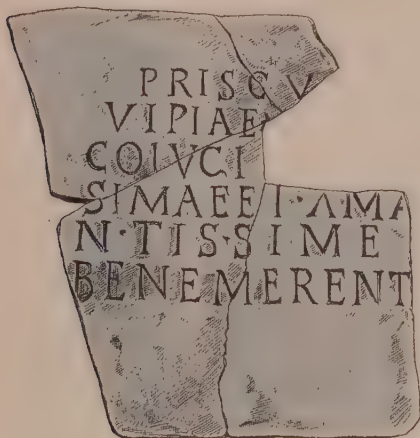 PRISCV
VIPIAE
COIVCI
SIMAEEI·AMA
N·TIS·SIME
BENEMERENT